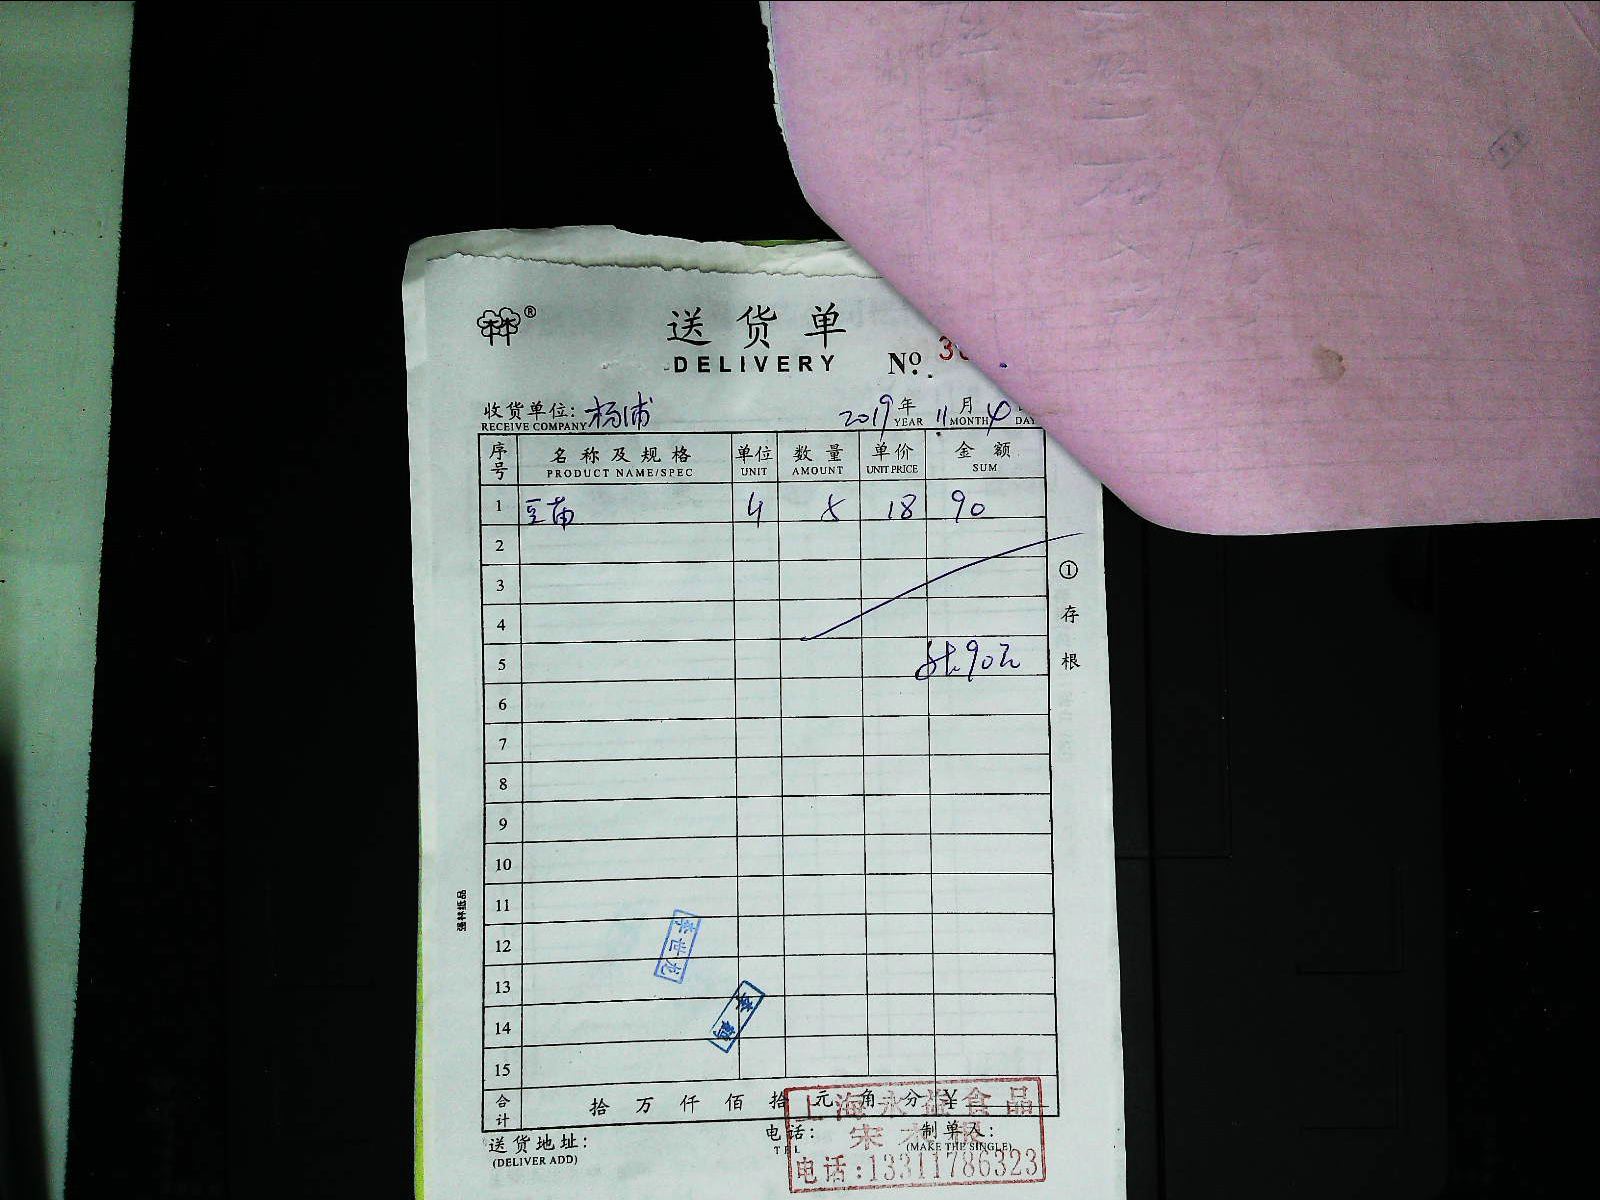 林®
送货单
DELIVERY
No. 3
收货单位: 杨浦 2019年 11月 4
RECEIVE COMPANY YEAR MONTH DAY
序号 名称及规格 单位 数量 单价 金额
PRODUCT NAME/SPEC UNIT AMOUNT UNIT PRICE SUM
1 豆苗 4 5 18 90
2
3
4
5 90元
6
7
8
9
10
11
12
13
14
15
李世龙
合计 拾 万 仟 佰 拾 元 角 分 ¥
送货地址: 电话: 制单人:
(DELIVER ADD) TEL (MAKE THE SINGLE)
上海永益食品
宋
电话:13311786323
①存根
强林纸品